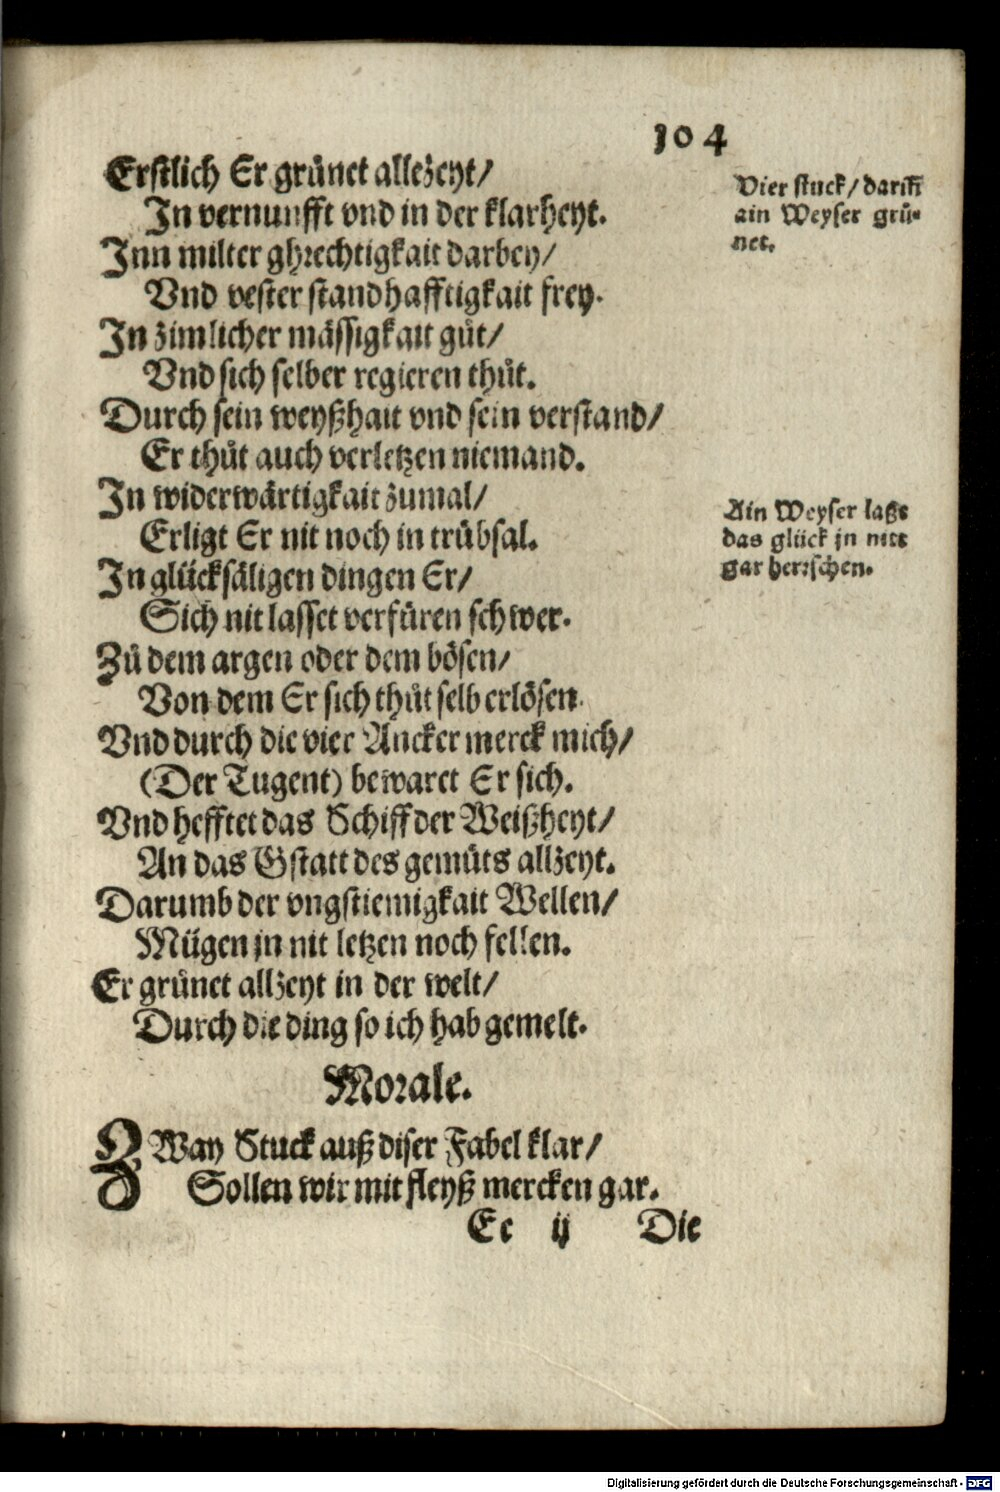 104
Erstlich Er grůnet allezeyt/
In vernunfft vnd in der klarheyt.
Inn milter ghrechtigkait darbey/
Vnd vester standhafftigkait frey.
In zimlicher mässigkait gůt/
Vnd sich selber regieren thůt.
Durch sein weyßhait vnd sein verstand/
Er thůt auch verletzen niemand.
In widerwärtigkait zumal/
Erligt Er nit noch in trübsal.
In glücksäligen dingen Er/
Sich nit lasset verfüren schwer.
Zů dem argen oder dem bösen/
Von dem Er sich thůt selb erlösen.
Vnd durch die vier Ancker merck mich/
(Der Tugent) bewaret Er sich.
Vnd hefftet das Schiff der Weißheyt/
An das Gstatt des gemüts allzeyt.
Darumb der vngstiemigkait Wellen/
Mügen jn nit letzen noch fellen.
Er grůnet allzeyt in der welt/
Durch die ding so ich hab gemelt.
Morale.
ZWay Stuck auß diser Fabel klar/
Sollen wir mit fleyß mercken gar.
Ee ij Die
Vier stuck/ dariñ
ain Weyser grů-
net.
Ain Weyser laßt
das glück jn nitt
gar herrschen.
Digitalisierung gefördert durch die Deutsche Forschungsgemeinschaft - DFG